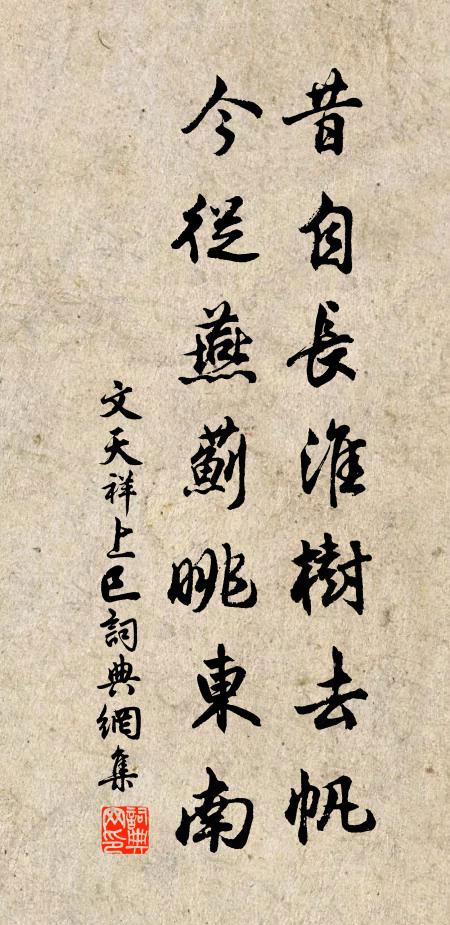 昔自長淮樹去帆
今從燕薊眺東南
文天祥上巳詞典網集
詞典網印